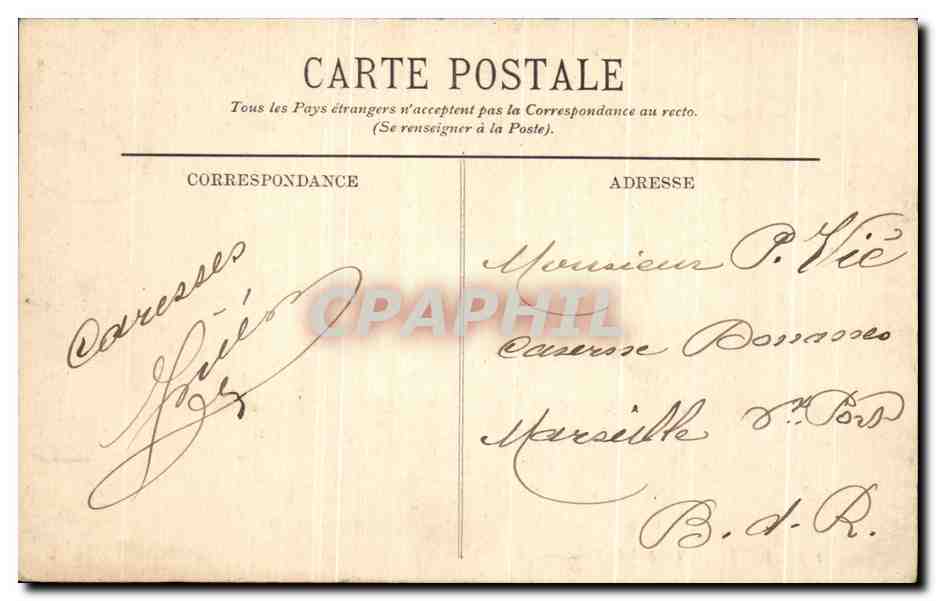 CARTE POSTALE
Tous les Pays étrangers n'acceptent pas la Correspondance au recto.
(Se renseigner à la Poste).
CORRESPONDANCE
Caresses
ADRESSE
Monsieur P. Vié
Caserne Douanes
Marseille Vx Port
B. d. R.
CPAPHIL